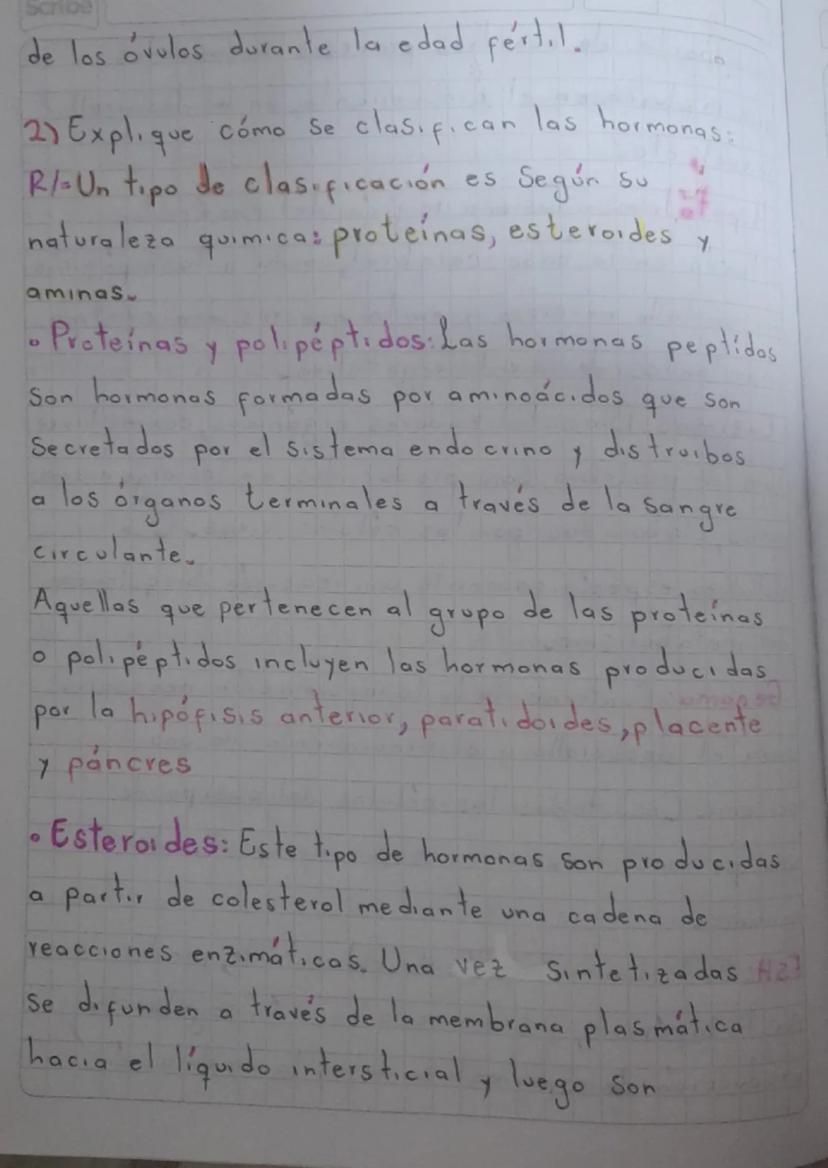 Scribe
de los óvulos durante la edad fértil.
2) Explique cómo se clasifican las hormonas:
R/= Un tipo de clasificación es Según su
naturaleza quimica: proteínas, esteroides y
aminas.
• Proteínas y polipéptidos: Las hormonas peptidos
Son hormonas formadas por aminoácidos que son
Secretados por el sistema endocrino y distruibos
a los órganos terminales a través de la sangre
circulante.
Aquellas que pertenecen al grupo de las proteínas
o polipéptidos incluyen las hormonas producidas
por la hipófisis anterior, paratidoides, placente
y páncres
• Esteroides: Este tipo de hormonas son producidas
a partir de colesterol mediante una cadena de
reacciones enzimáticas. Una vez sintetizadas
se difunden a través de la membrana plasmática
hacia el líquido intersticial y luego son